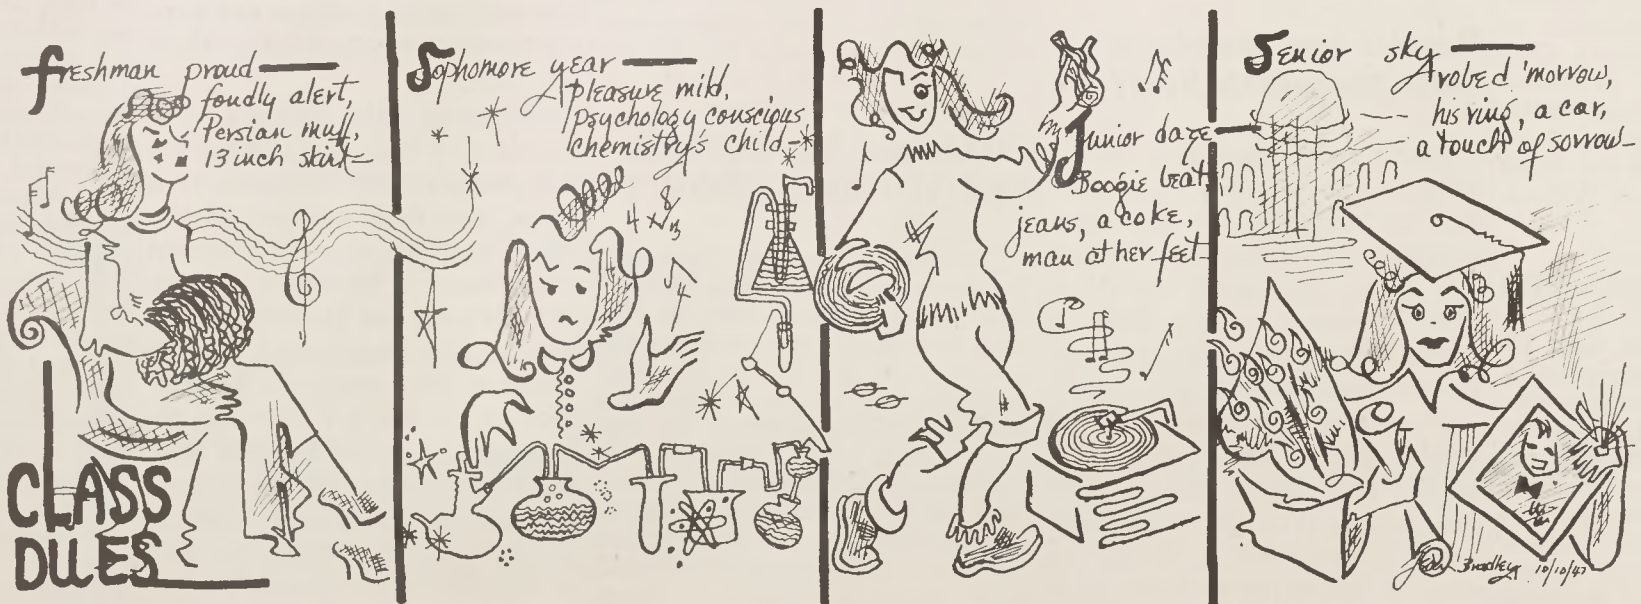 Freshman proud—
fondly alert,
Persian muff,
13 inch skirt—
CLASS
DUES
Sophomore year—
pleasure mild,
psychology conscious
chemistry's child—
4 x 8/13
Junior daze—
Boogie beat,
jeans, a coke,
man at her feet—
Senior sky—
robed 'morrow,
his ring, a car,
a touch of sorrow—
Bradley 10/10/47